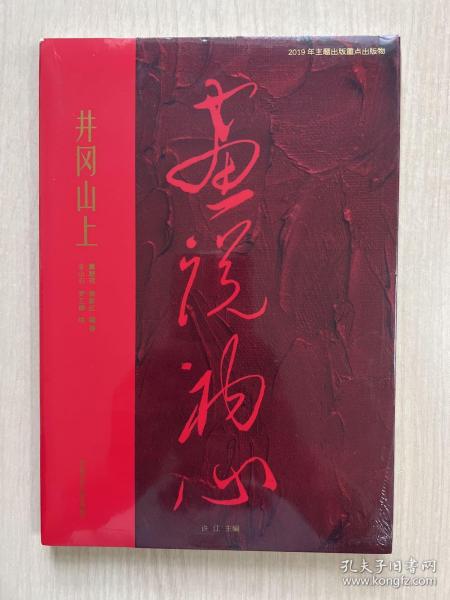 2019年主题出版重点出版物
画说初心
井冈山上
许江 主编
孔夫子旧书网
www.kongfz.com